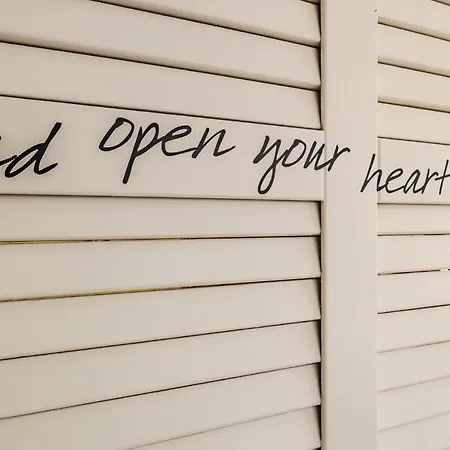 open your heart